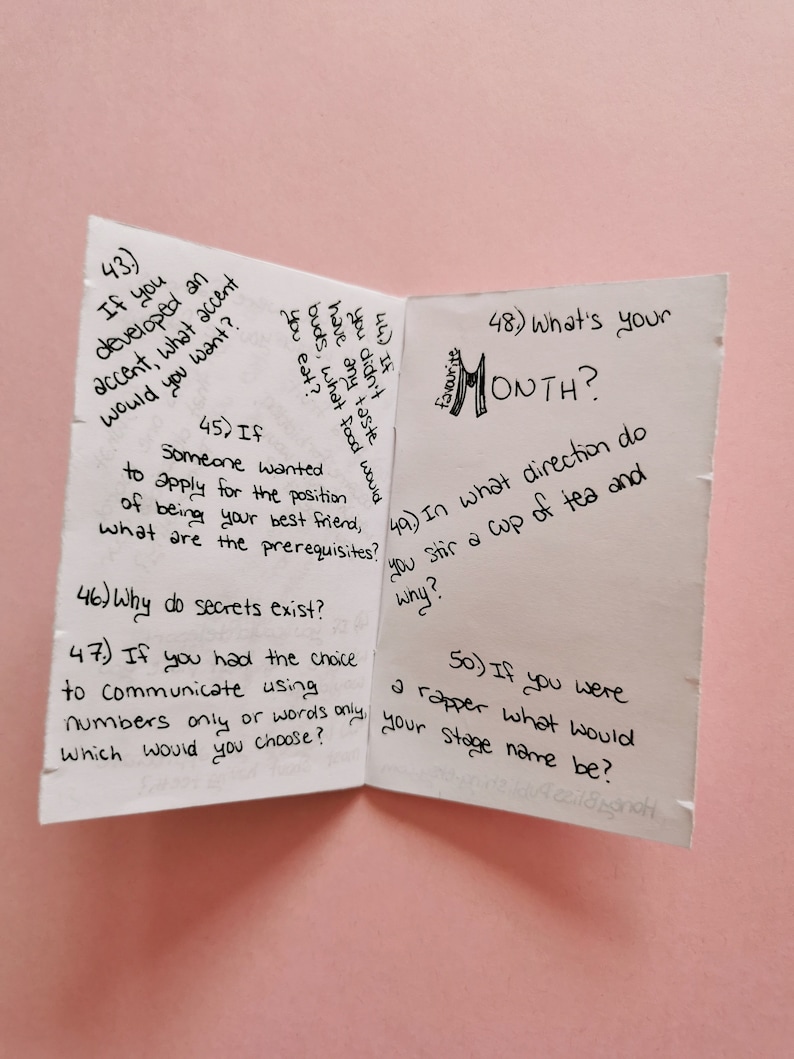 43.)
If you
developed an
accent, what accent
would you want?
44.) If
you didn't
have any taste
buds, what food would
you eat?
45.) If
someone wanted
to apply for the position
of being your best friend,
what are the prerequisites?
46.) Why do secrets exist?
47.) If you had the choice
to communicate using
numbers only or words only,
which would you choose?
48.) What's your
favourite MONTH?
49.) In what direction do
you stir a cup of tea and
why?
50.) If you were
a rapper what would
your stage name be?